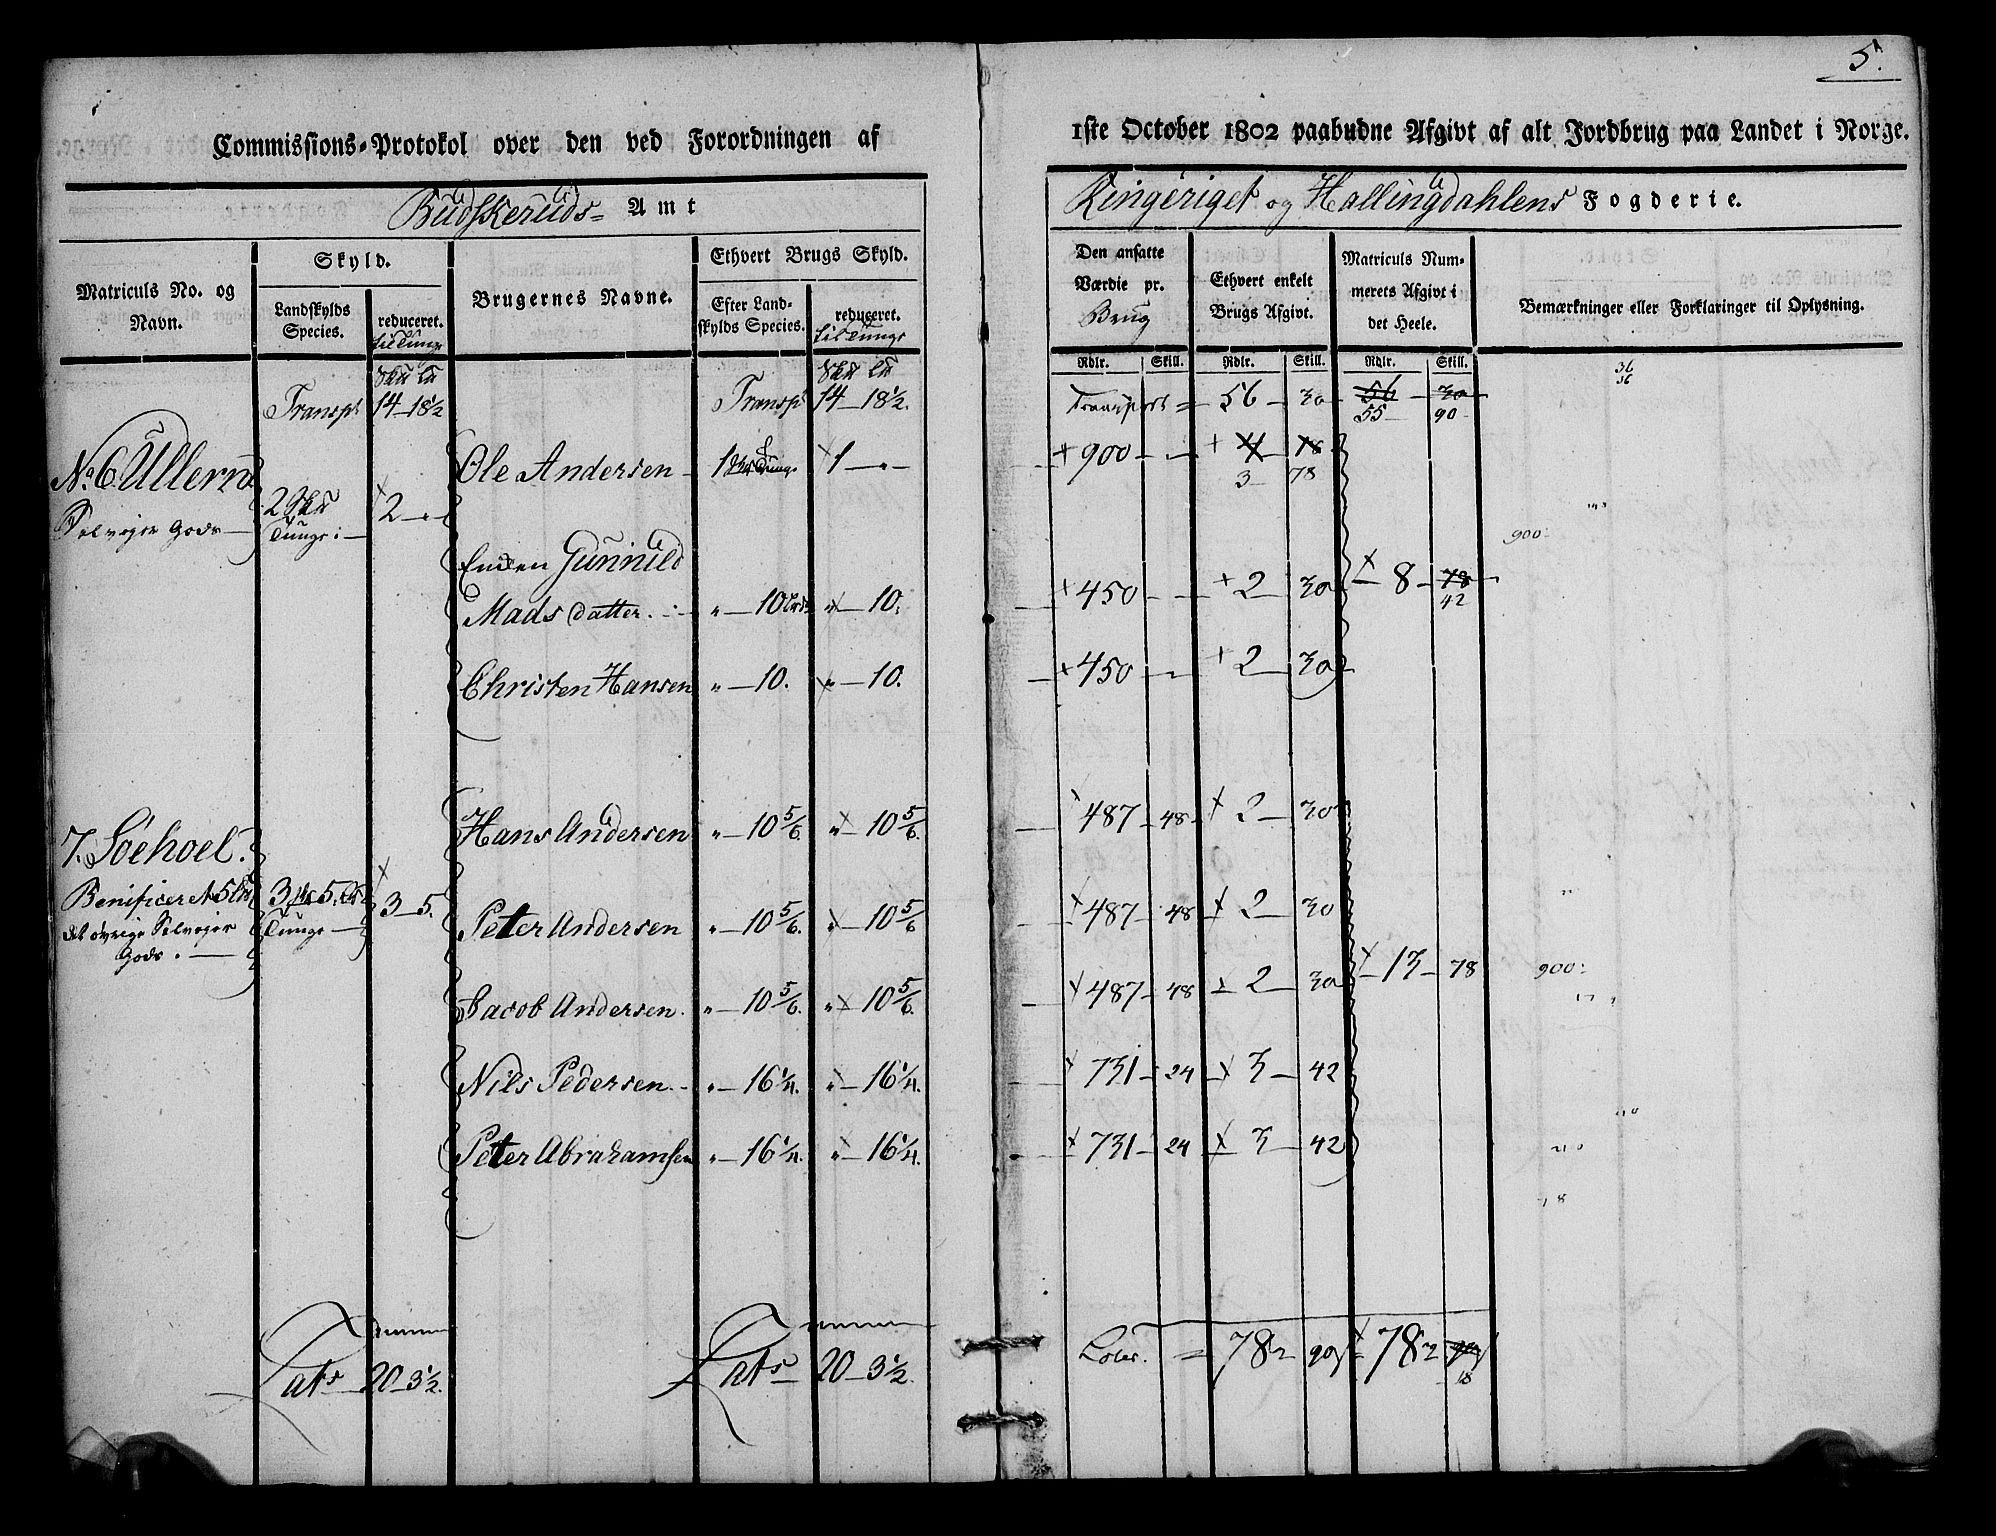 5.
Commissions-Protokol over den ved Forordningen af
1ste October 1802 paabudne Afgivt af alt Jordbrug paa Landet i Norge.
Budskeruds- Amt
Ringeriget og Hallingdahlens Fogderie.
Matriculs No. og Navn.
Skyld.
Landskylds Species.
reduceret. til Tunge
Brugernes Navne.
Ethvert Brugs Skyld.
Efter Landskylds Species.
reduceret. til Tunge
Den ansatte Værdie pr. Brug
Ethvert enkelt Brugs Afgivt.
Matriculs Nummerets Afgivt i det Heele.
Bemærkninger eller Forklaringer til Oplysning.
Rdlr. Skill. Rdlr. Skill. Rdlr. Skill.
Transpt 14 - 18 1/2 Transpt 14 - 18 1/2. Transport = 56 - 30 56 - 30
55 - 90
36
36
No. 6. Ullern
Selveier Gods
2 Tunge 2 - " -
Ole Andersen - 1 1 - " - 900 - - 4 18
3 - 78
900
Enken Gunnild
Mads datter. " - 10 " - 10. 450 - - 2 - 30 8 - 78
42
Christen Hansen " - 10. " - 10. 450 - - 2 - 30
7. Söehoel.
Benificeret 5
det övrige Selveier
Gods. -
3 5 Tunge - 3 - 5.
Hans Andersen " - 10 5/6. " - 10 5/6. 487 - 48 - 2 - 30
Peter Andersen " - 10 5/6. " - 10 5/6 487 - 48 2 - 30
13 - 78
900
Jacob Andersen. " - 10 5/6. " - 10 5/6. 487 - 48 2 - 30
Nils Pedersen. - " - 16 1/4. " - 16 1/4. 731 - 24 3 - 42
Peter Abrahamsen " - 16 1/4. " - 16 1/4. 731 - 24 3 - 42
Lats 20 - 3 1/2. Lats 20 - 3 1/2. Later. = 78 90 78
18